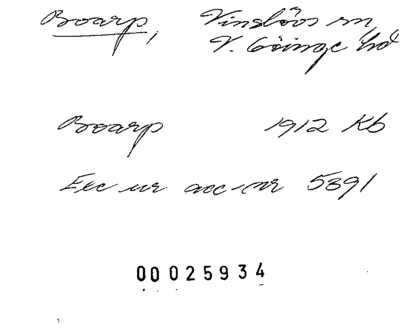 Boarp, Vinslövs sn,
V. Göinge hd
Boarp 1912 Kb
Exc ur acc-nr 5391
00025934